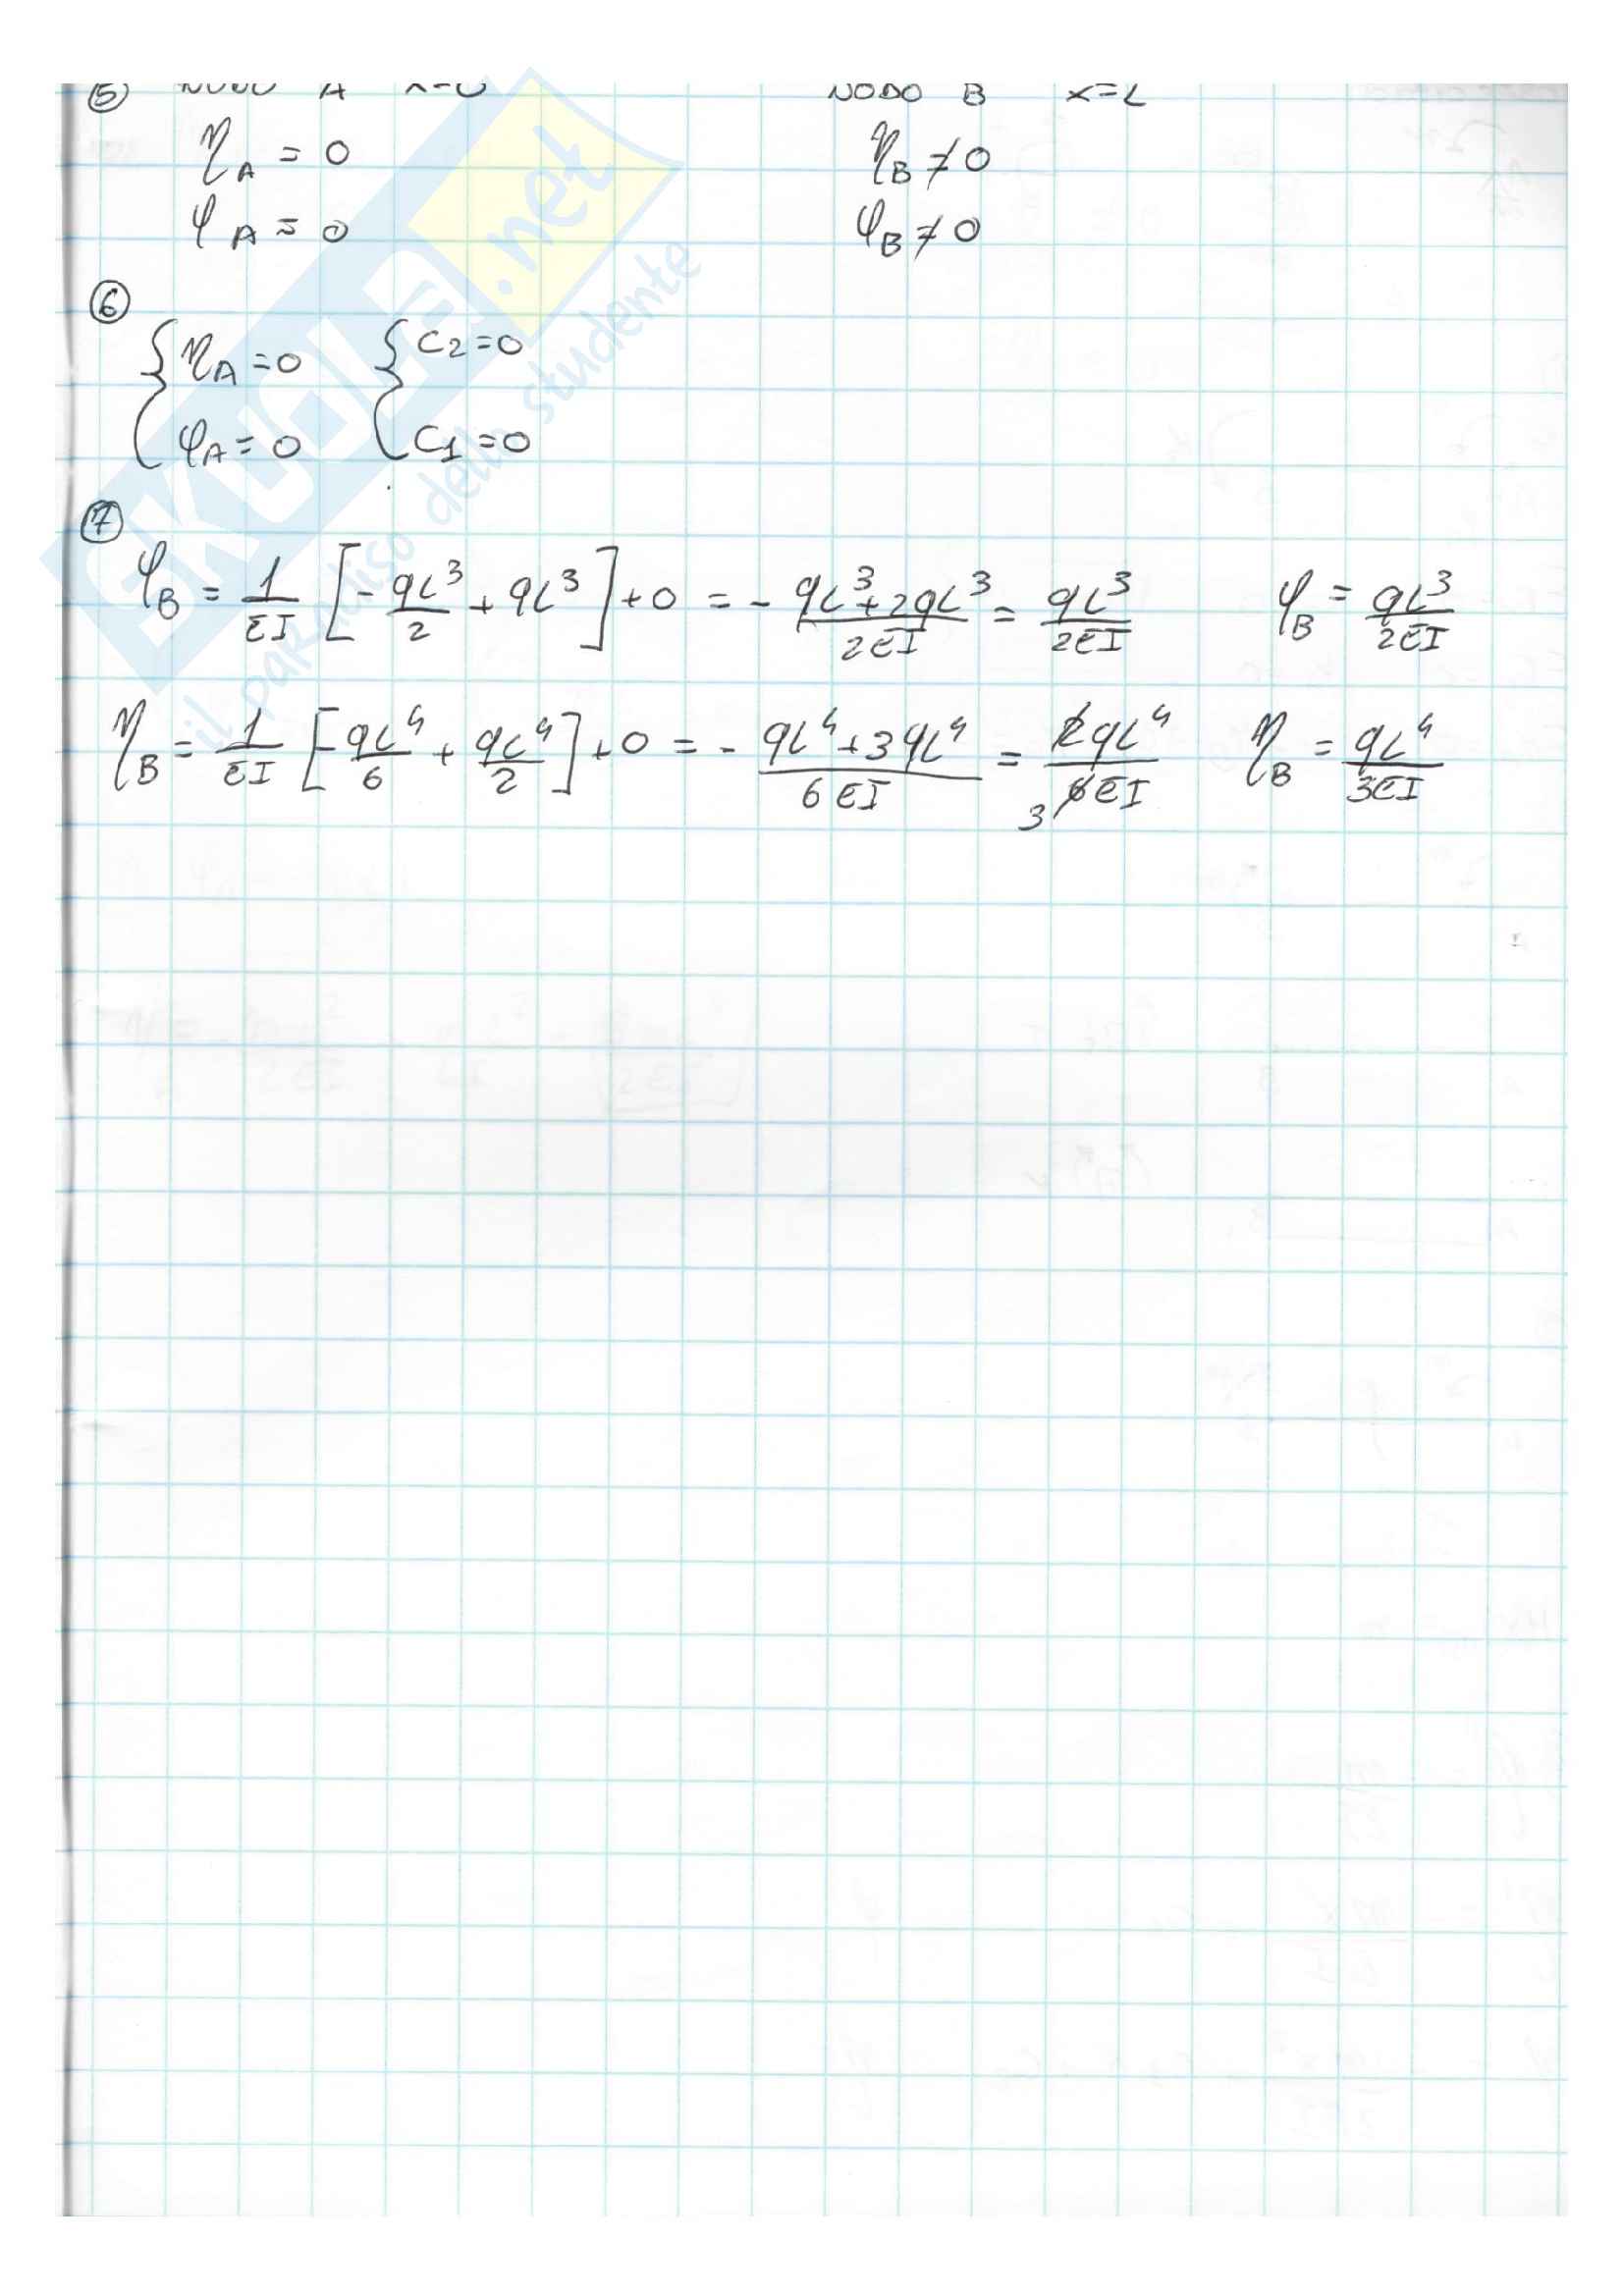 ⑤ NODO A x=0 NODO B x=L
η_A = 0 η_B ≠ 0
φ_A = 0 φ_B ≠ 0
⑥
{ η_A = 0 { C2 = 0
φ_A = 0 C1 = 0
⑦
φ_B = 1/EI [ - qL³/2 + qL³ ] + 0 = - qL³+2qL³/2EI = qL³/2EI φ_B = qL³/2EI
η_B = 1/EI [ - qL⁴/6 + qL⁴/2 ] + 0 = - qL⁴+3qL⁴/6EI = 2qL⁴/6EI 3 η_B = qL⁴/3EI
SKUOLA.net
il paradiso dello studente